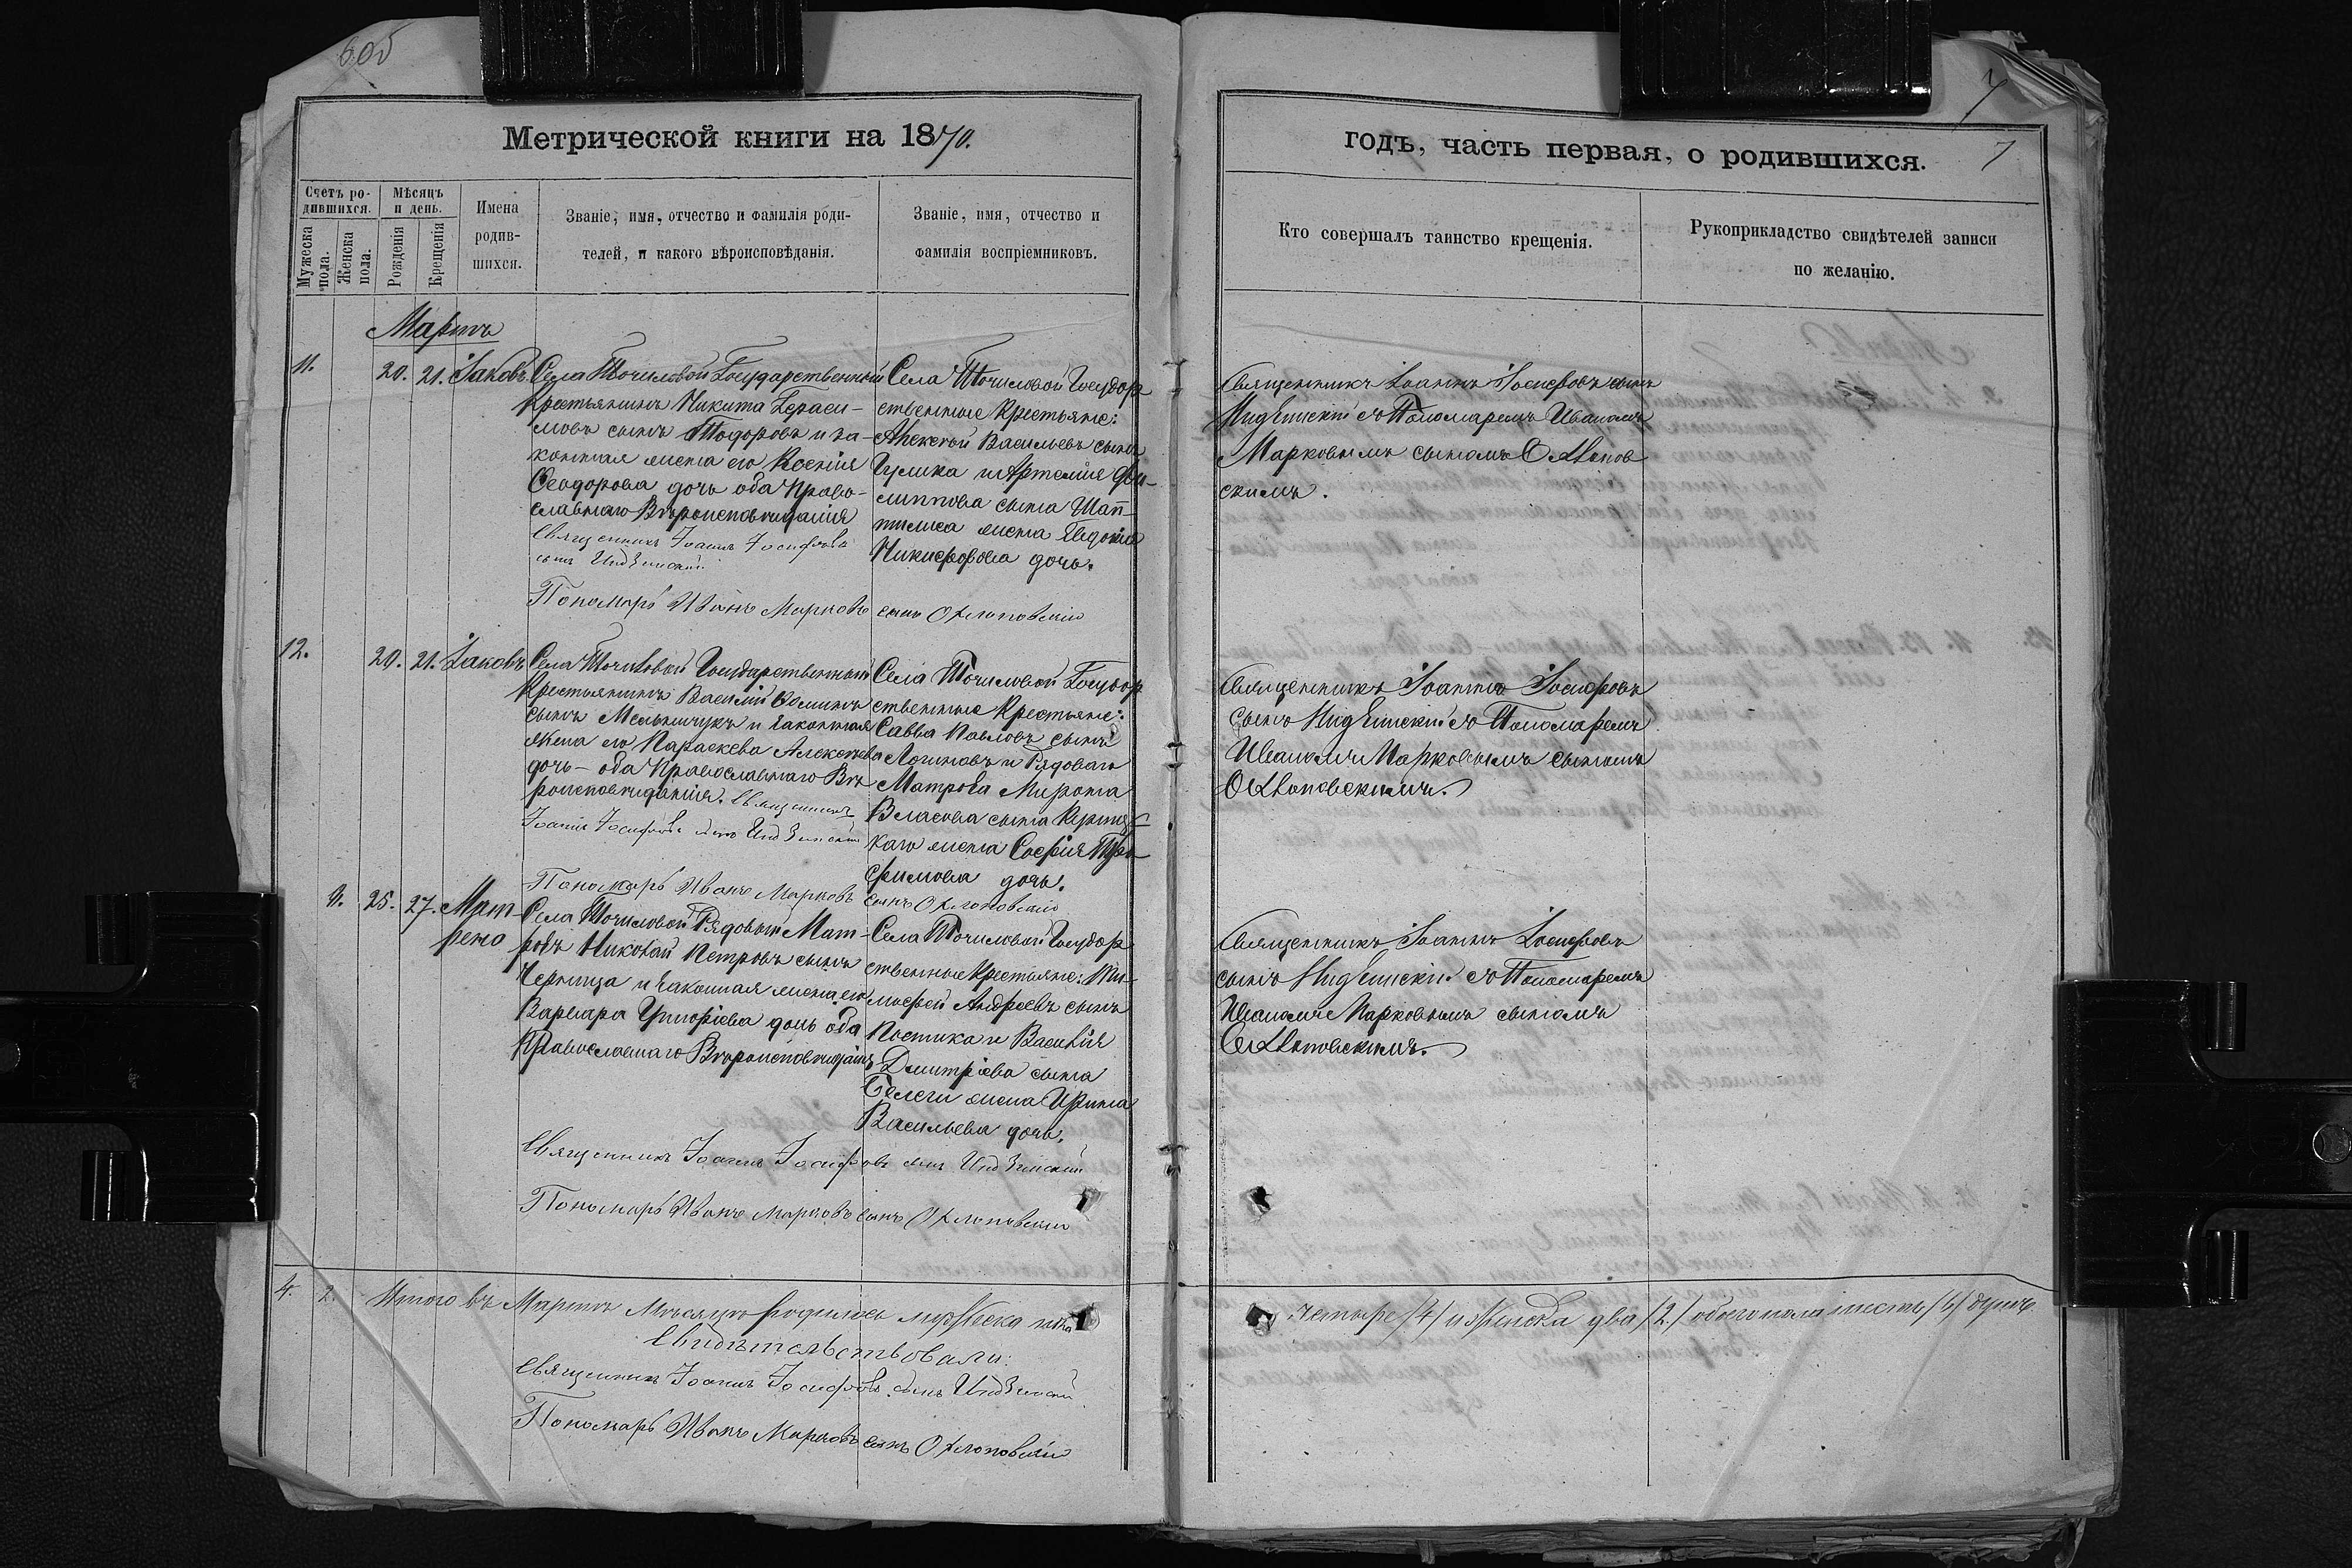 605
7
Метрической книги на 1870.
годъ, часть первая, о родившихся. 7
Счетъ ро-
дившихся.
Мужеска пола.
Женска пола.
Мѣсяцъ
и день.
Рожденія
Крещенія
Имена
родив-
шихся.
Званіе, имя, отчество и фамилія роди-
телей, и какого вѣроисповѣданія.
Званіе, имя, отчество и
фамилія воспріемниковъ.
Кто совершалъ таинство крещенія.
Рукоприкладство свидѣтелей записи
по желанію.
Мартъ
11. 20. 21. Іаковъ
Села Точиловой Государственный
Крестьянинъ Никита Гераси-
мовъ сынъ Тодоровъ и за-
конная жена его Ксенія
Ѳеодорова дочь оба Право-
славнаго Вѣроисповѣданія
Священникъ Іоаннъ Іосифовъ
сынъ
Пономарь Иванъ Марковъ сынъ
Села Точиловой Государ
ственные Крестьяне:
Алексѣй Васильевъ сынъ
и Артемія Фи-
липпова сына
жена Евдокія
Никифорова дочь.
Священникъ Іоаннъ Іосифовъ сынъ
съ Пономаремъ Иваномъ
Марковымъ сыномъ
скимъ.
12. 20. 21. Іаковъ
Села Точиловой Государственный
Крестьянинъ Василій Фоминъ
сынъ Мельничукъ и законная
жена его Параскева Алексѣева
дочь – оба Православнаго Вѣ
роисповѣданія. Священникъ
Іоаннъ Іосифовъ сынъ
Пономарь Иванъ Марковъ сынъ
Села Точиловой Государ
ственные Крестьяне:
Савва Павловъ сынъ
Логиновъ и Рядоваго
Матроса Мирона
Власова сына
каго жена Софія Тро
фимова дочь.
Священникъ Іоаннъ Іосифовъ
сынъ съ Пономаремъ
Иваномъ Марковымъ сыномъ
25. 27. Мат-
рено
Села Точиловой Рядовый Мат-
росъ Николай Петровъ сынъ
Черница и законная жена его
Варвара Григоріева дочь оба
Православнаго Вѣроисповѣданія
Села Точиловой Государ
ственные Крестьяне: Ти-
мофей Андреевъ сынъ
Постика и Василія
Димитріева сына
жена Ирина
Васильева дочь.
Священникъ Іоаннъ Іосифовъ сынъ
Пономарь Иванъ Марковъ сынъ
Священникъ Іоаннъ Іосифовъ
сынъ съ Пономаремъ
Иваномъ Марковымъ сыномъ
4. 2. Итого въ Мартѣ Мѣсяцѣ родилось мужеска пола четыре /4/ и женска два /2/ обоего пола шесть /6/ душъ.
Свидѣтельствовали:
Священникъ Іоаннъ Іосифовъ сынъ
Пономарь Иванъ Марковъ сынъ